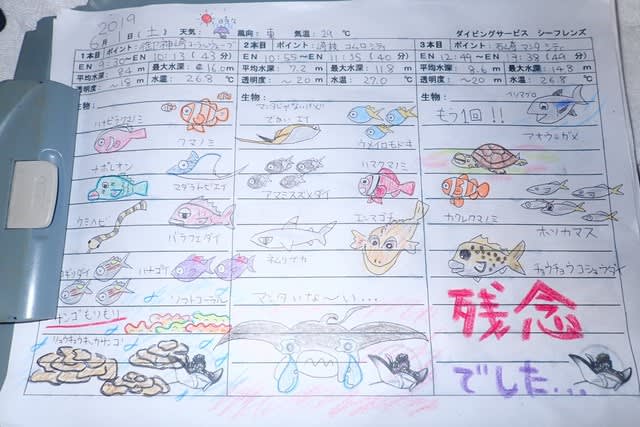 2019
6月1日(土) 天気: 晴れ 風向: 東 気温: 29℃ ダイビングサービス シーフレンズ
1本目 ポイント:
EN 9:30〜EN 10:13 (43分)
平均水深: 8.4 m 最大水深: 16.0 m
透明度: 〜18 m 水温: 26.8 ℃
生物:
ハナビラクマノミ
クマノミ
ナポレオン
マダラトビエイ
ウミヘビ
バラフエダイ
ギリダイ
ハナゴイ
ソフトコーラル
サンゴもりもり
リュウキュウキッカサンゴ
2本目 ポイント: 崎枝 コムロシティ
EN 10:55〜EN 11:35 (40分)
平均水深: 7.2 m 最大水深: 11.8 m
透明度: 〜20 m 水温: 27.0 ℃
生物: マンタじゃないけど
でかいエイ
ウメイロモドキ
ハマクマノミ
アマミスズメダイ
ネムリブカ
マンタいな〜い...
3本目 ポイント: 石崎 マンタシティ
平均水深: 8.6 m 最大水深: 14.8 m
透明度: 〜20 m 水温: 27.0 ℃
生物:
もう1回!!
アオウミガメ
カクレクマノミ
ホソカマス
チョウチョウコショウダイ
残念
でした...